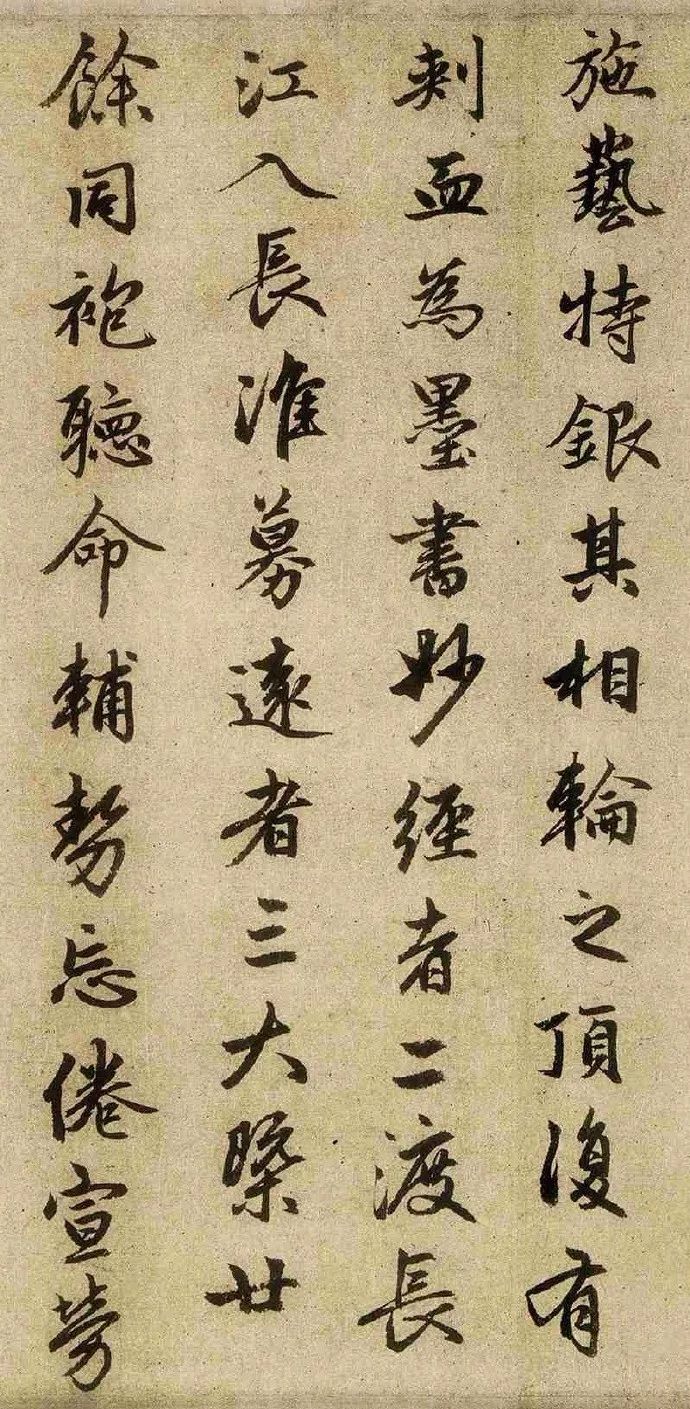 施藝特銀其相輪之頂復有
刺血為墨書妙經者二渡長
江入長淮募遠者三大槩廿
餘同袍聽命輔勢忘倦宣勞